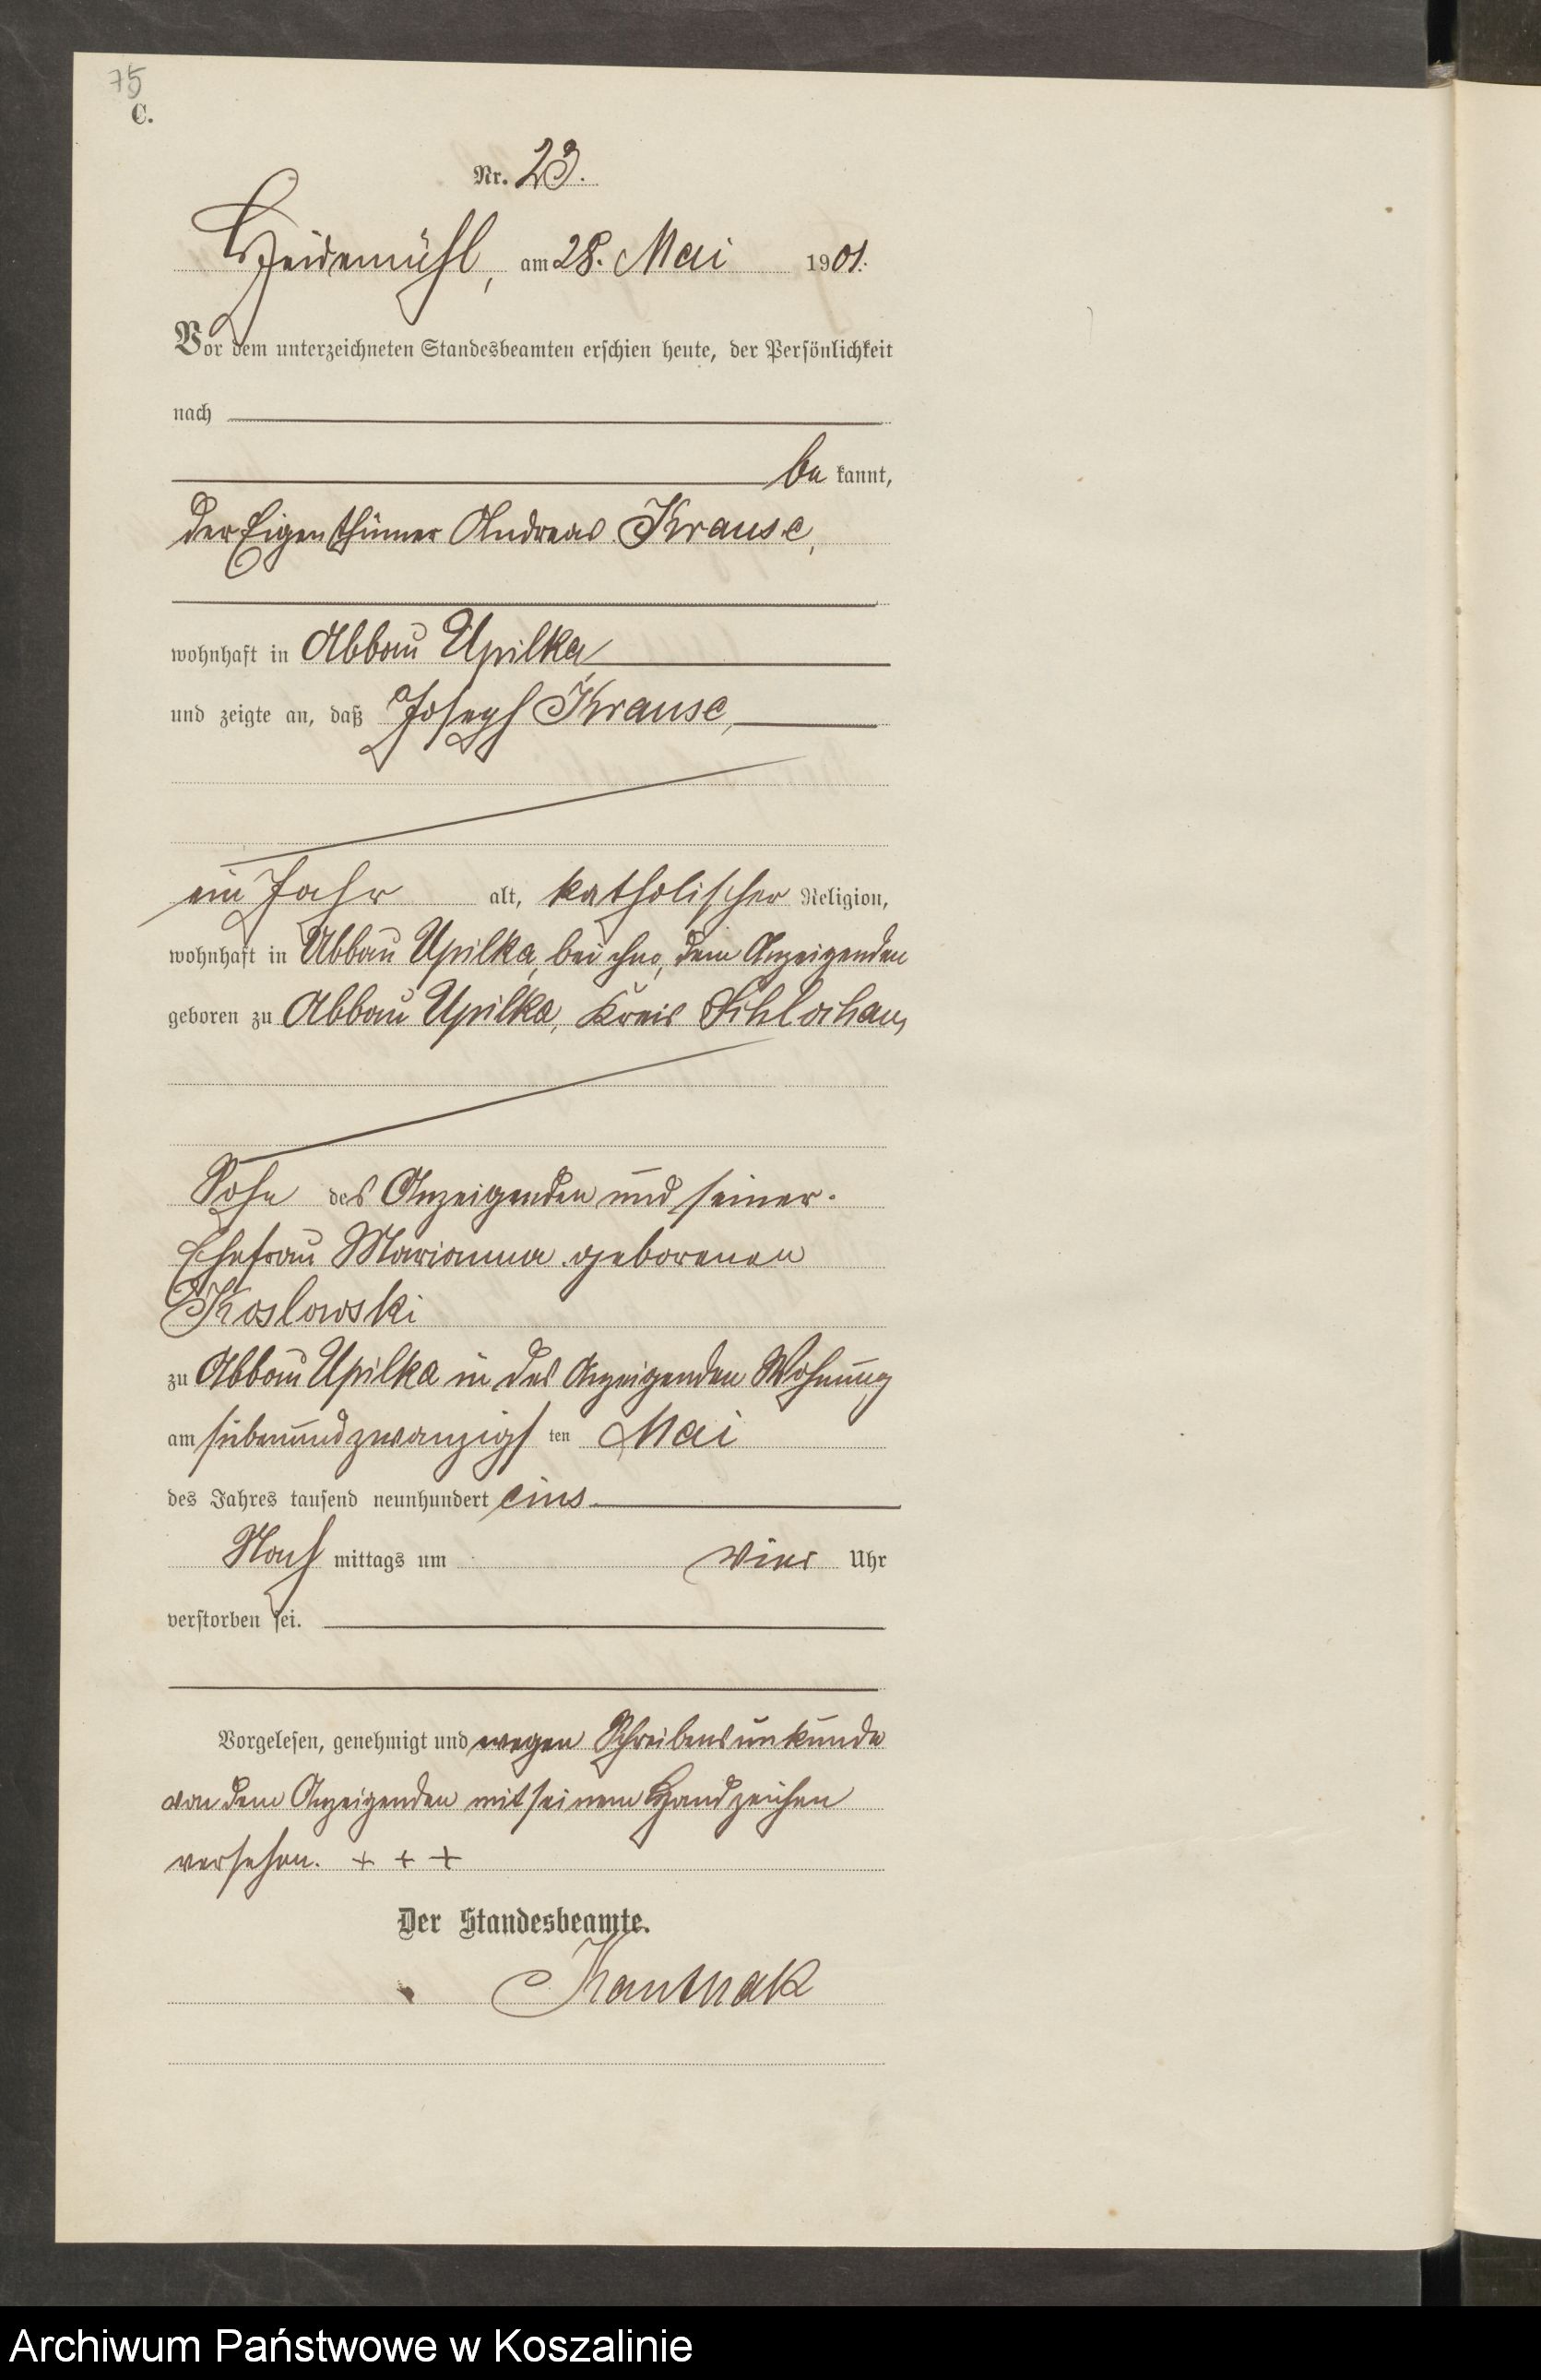 75
C.
Nr. 23.
Heidemühl, am 28. Mai 1901.
Vor dem unterzeichneten Standesbeamten erschien heute, der Persönlichkeit
nach
be kannt,
der Eigenthümer Andreas Krause,
wohnhaft in Abbau Upilka
und zeigte an, daß Joseph Krause,
ein Jahr alt, katholischer Religion,
wohnhaft in Abbau Upilka, bei ihm, dem Anzeigenden
geboren zu Abbau Upilka, Kreis Schlochau,
Sohn des Anzeigenden und seiner
Ehefrau Marianna geborenen
Koslowski
zu Abbau Upilka in des Anzeigenden Wohnung
am siebenundzwanzigs ten Mai
des Jahres tausend neunhundert eins
Nach mittags um vier Uhr
verstorben sei.
Vorgelesen, genehmigt und wegen Schreibensunkunde
von dem Anzeigenden mit seinem Handzeichen
versehen. + + +
Der Standesbeamte.
Archiwum Państwowe w Koszalinie